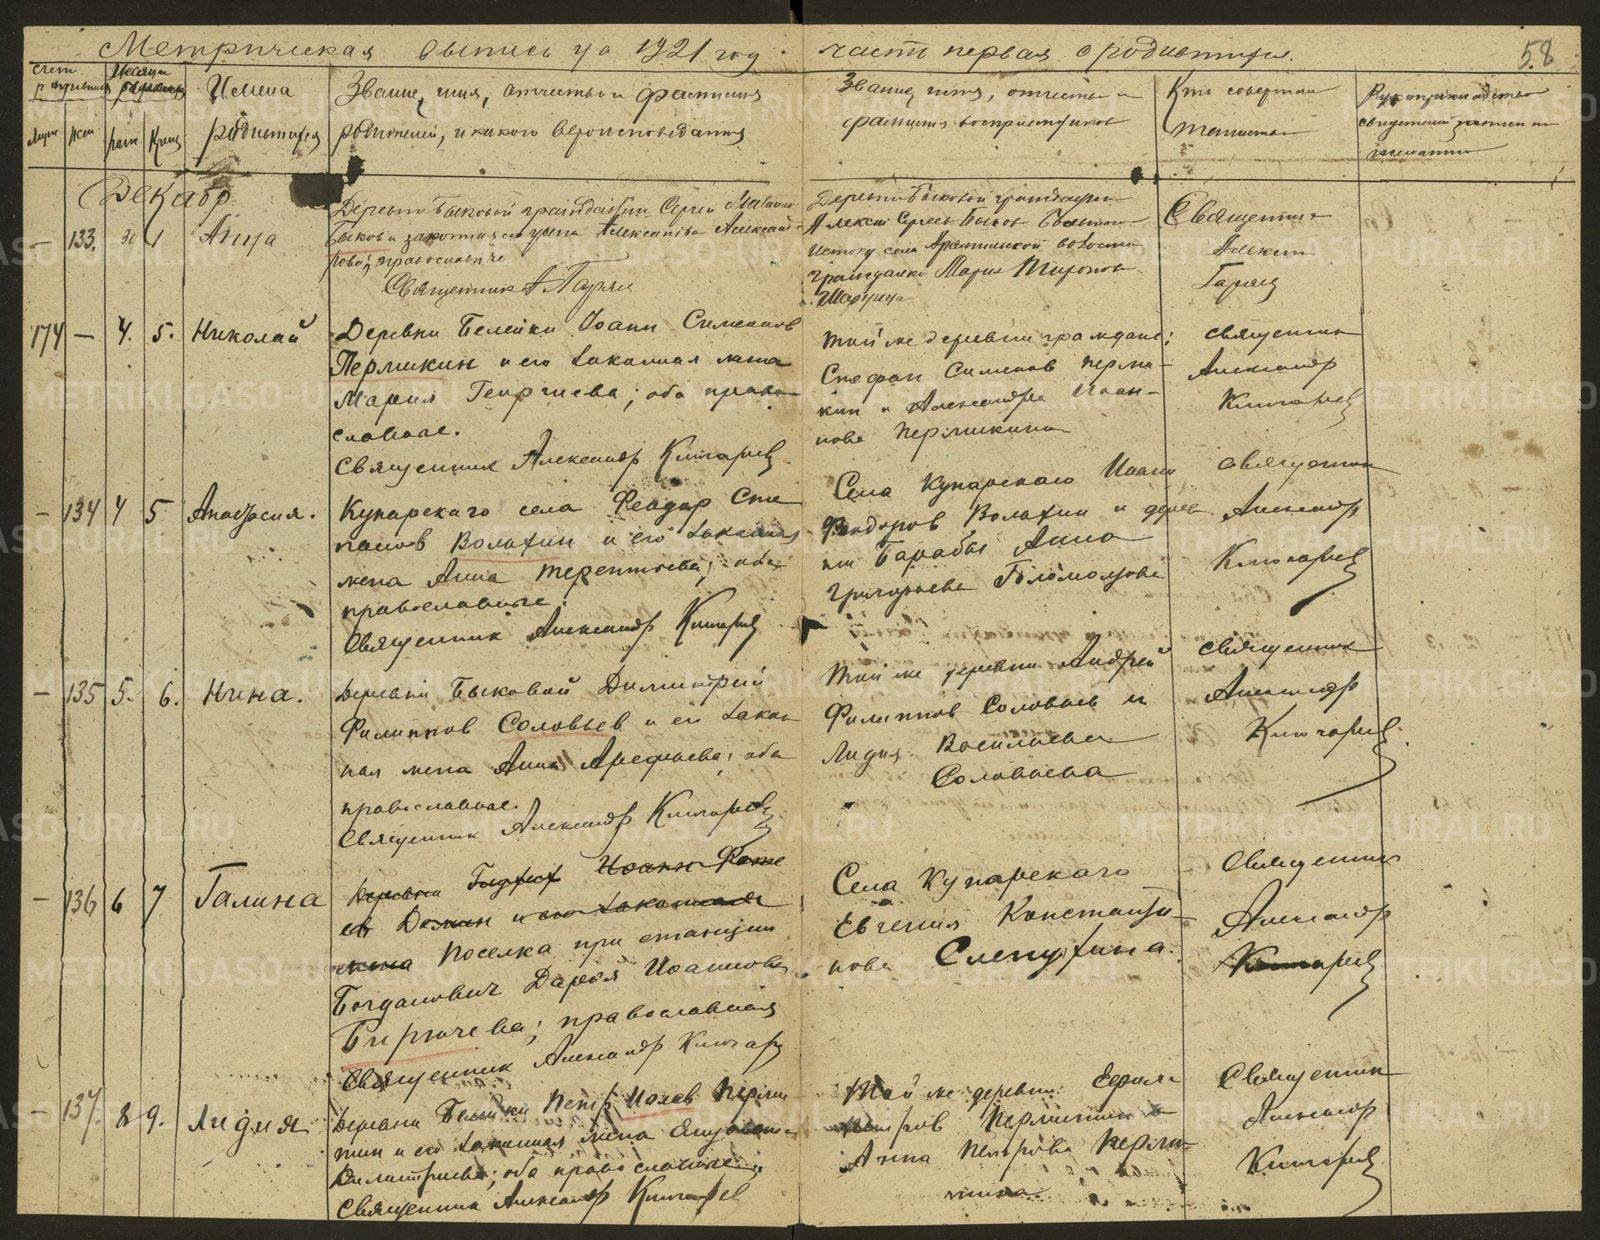 Метрическая выпись за 1921 год часть первая о родившихся.
58
Счет родившихся
Месяц
Имена родившихся
Звание, имя, отчество и фамилия
родителей, и какого вероисповедания
Звание, имя, отчество и
фамилия восприемников
Кто совершал
таинство
Рукоприкладство
свидетелей записи по
желанию
Муж Жен Рожд Крещ
Декабр
— 133. 30 1 Анна
Деревни Быковой гражданин Сергей
Быков и законная его жена Александра Александ-
рова, православные
Священник А Гаряев
Деревни Быковой гражданин
Алексей Сергеев Быков
села Арамильской волости
гражданка Мария
Священник
Алексий
Гаряев
174 — 4. 5. Николай
Деревни Белейки Иоанн Симеонов
Пермикин и его законная жена
Мария Георгиева; оба право-
славные.
Священник Александр Ключарев
Той же деревни граждане:
Стефан Симеонов Перми-
кин и Александра Иоан-
нова Пермикина
священник
Александр
Ключарев
— 134 4 5 Анастасия.
Кунарскаго села Феодор Сте
панов Волохин и его законная
жена Анна Терентьева; оба
православные.
Священник Александр Ключарев
Села Кунарскаго Иоанн
Феодоров Волохин и дерев
ни Барабы Анна
Григорьева Голомолзова
священник
Александр
Ключарев
— 135 5. 6. Нина.
Деревни Быковой Димитрий
Филиппов Соловьев и его закон
ная жена Анна Арефьева; оба
православные.
Священник Александр Ключарев
Той же деревни Андрей
Филиппов Соловьев и
Лидия Васильева
Соловьева
священник
Александр
Ключарев
— 136 6 7 Галина
Деревни Иоанн
и его законная
жена Поселка при станции
Богданович Дария Иоаннова
Бирючева; православная
Священник Александр Ключарев
Села Кунарскаго
Евгения Константи-
нова Слепухина.
Священник
Александр
Ключарев
— 137. 8 9. Лидия
Деревни Белейки Петр Иовлев Перми
кин и его законная жена Елизавета
Димитриева; оба православные;
Священник Александр Ключарев
Той же деревни: Ефим
Петров Пермикин и
Анна Петрова Перми-
кина.
Священник
Александр
Ключарев
METRIKI.GASO-URAL.RU